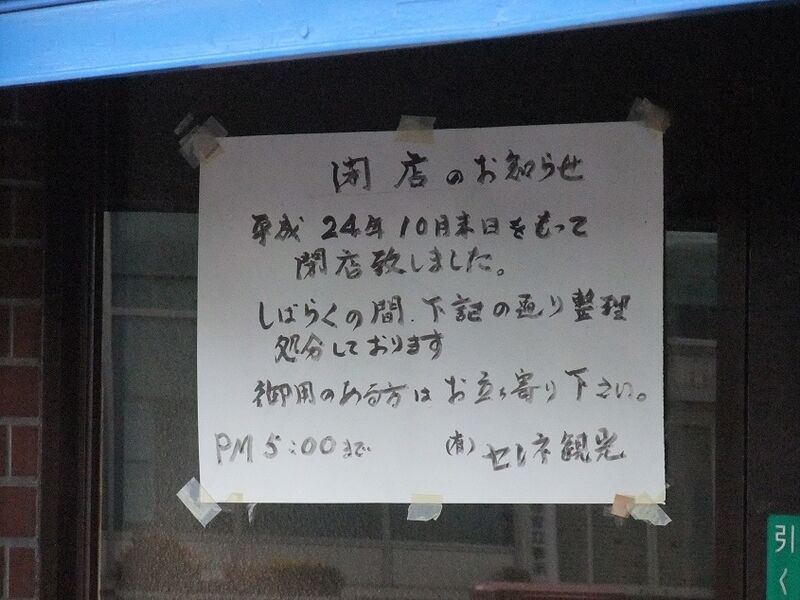 閉店のお知らせ
平成24年10月末日をもって
閉店致しました。
しばらくの間、下記の通り整理
処分しております
御用のある方はお立ち寄り下さい。
PM 5:00まで (有)セレネ観光
引く